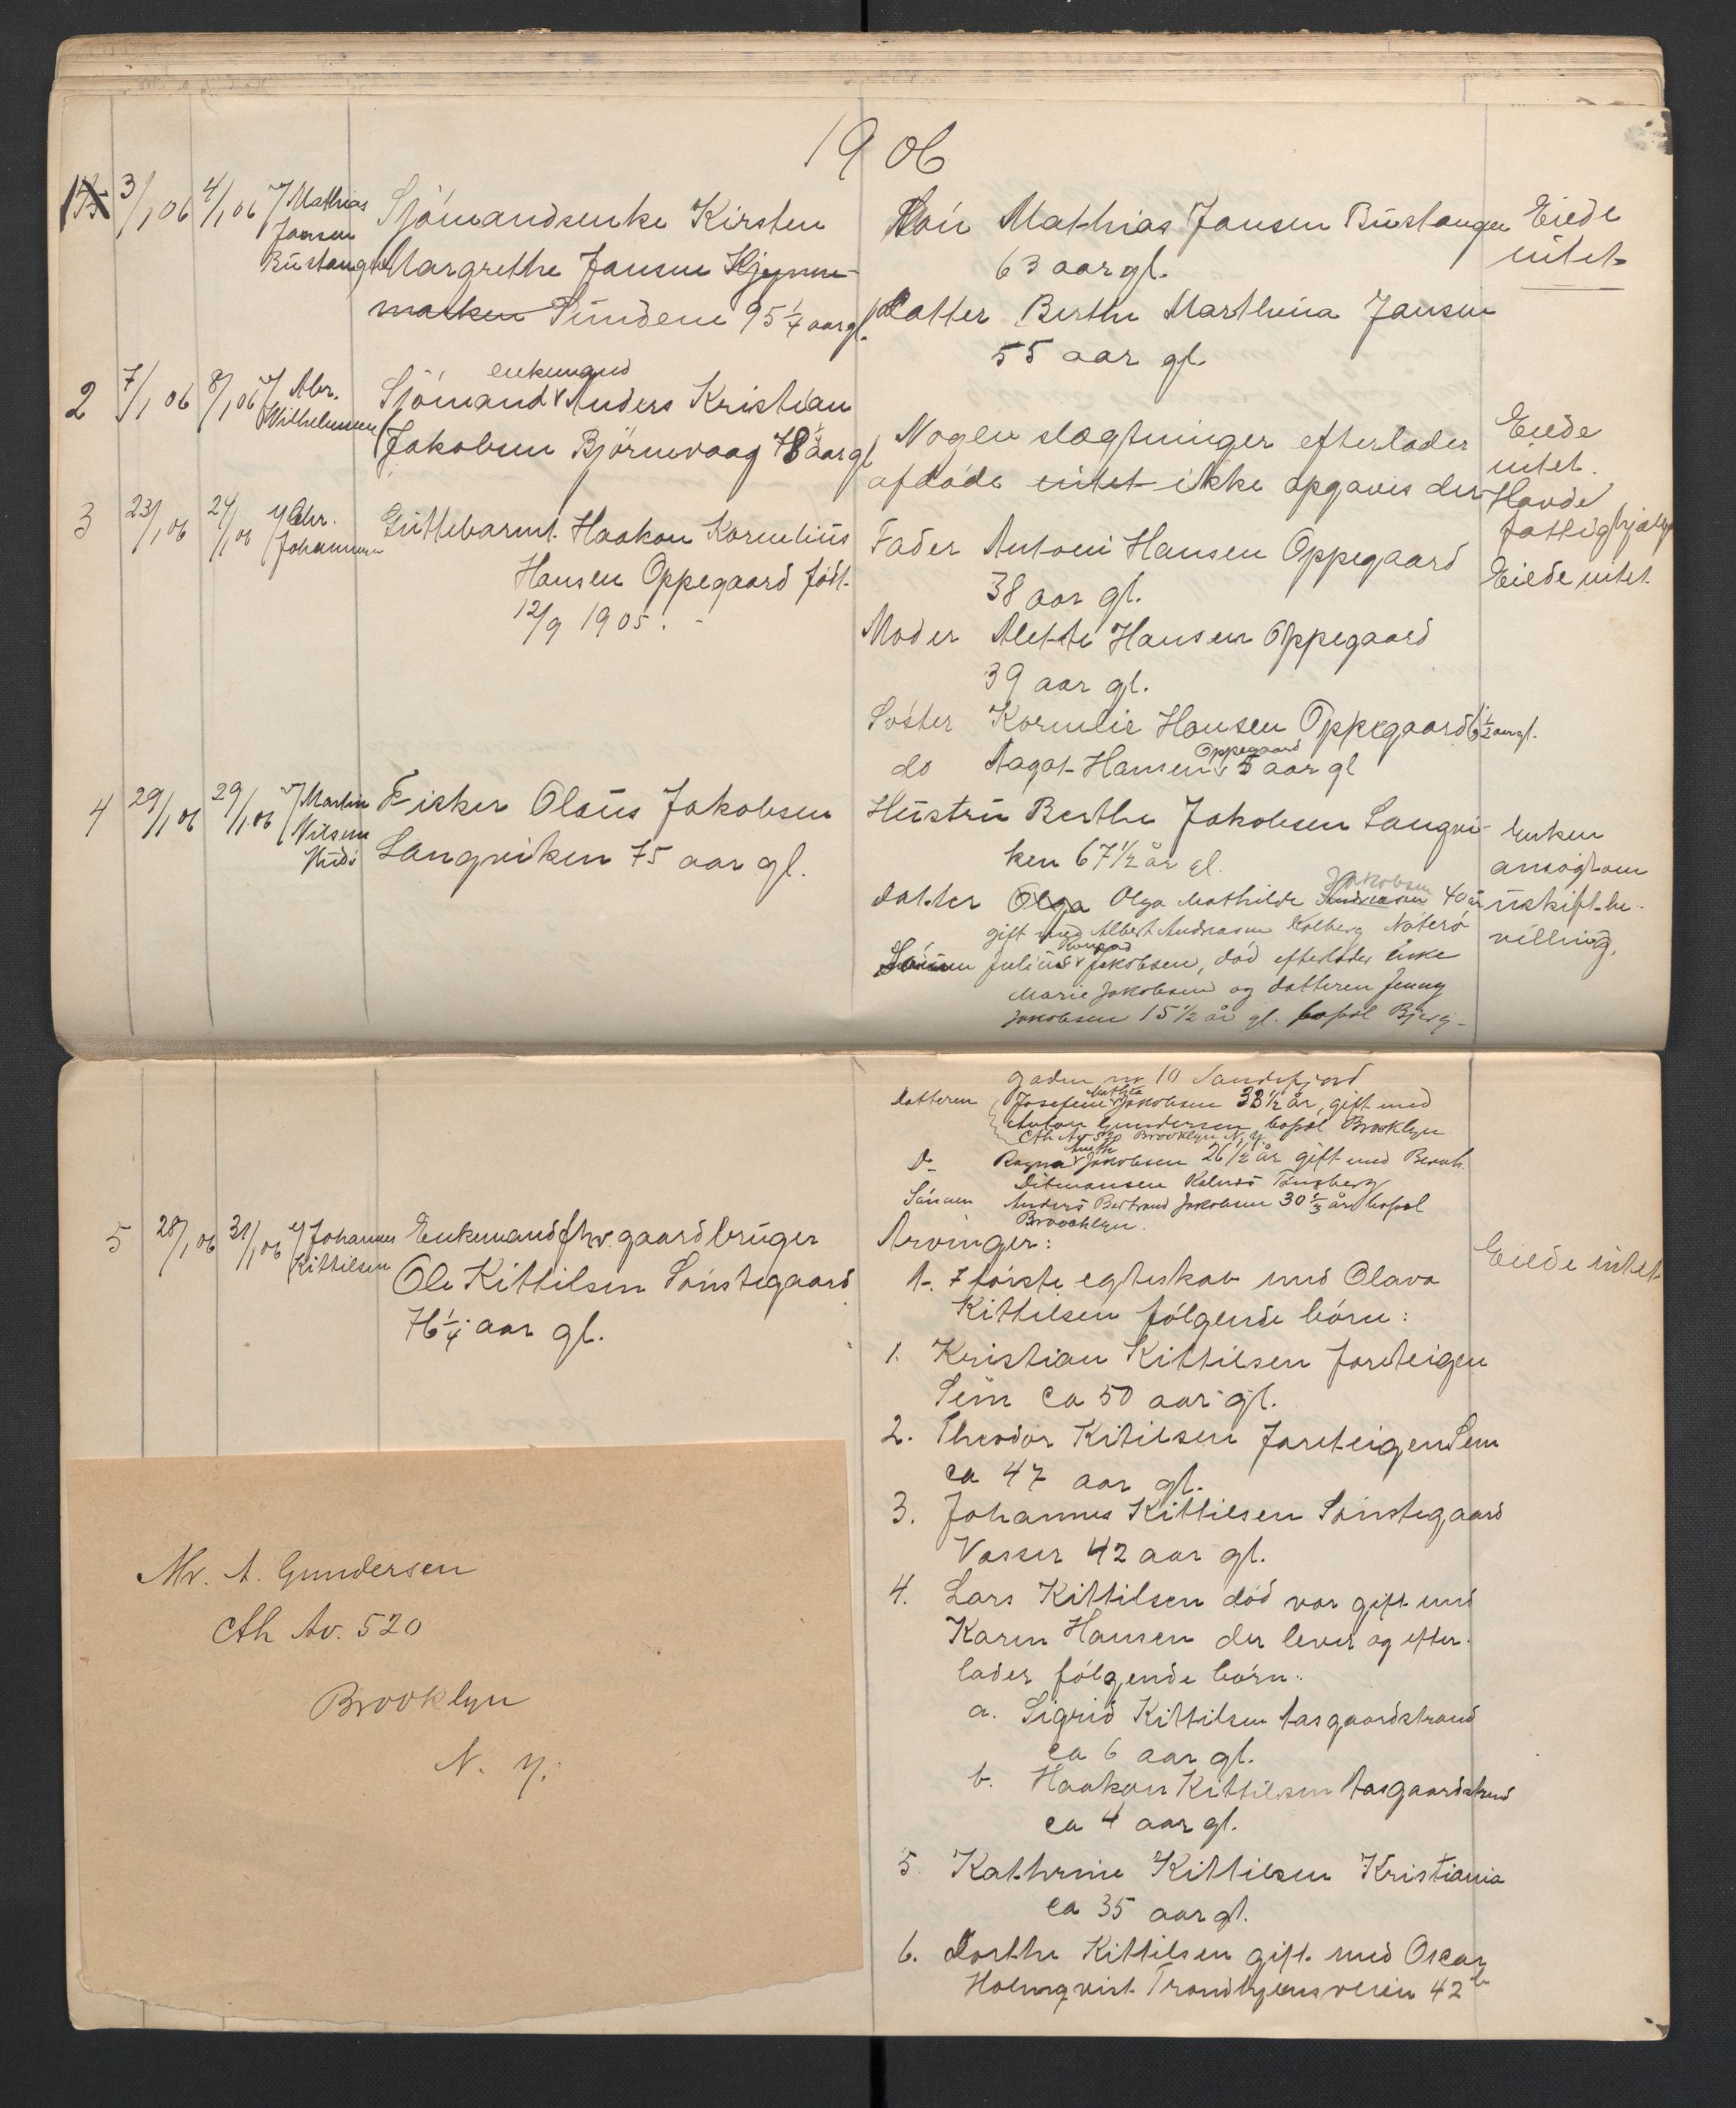 1906
1 3/1 06 4/1 06 v/ Mathias Jansen Bustangen
Sjömandsenke Kirsten
Margrethe Jansen Kjynne-
marken Sundene 95 1/4 aar gl.
Sön Mathias Jansen Bustangen
63 aar gl.
datter Berthe Marthina Jansen
55 aar gl.
Eiede
intet
2 7/1 06 8/1 06 v/ Abr. Wilhelmsen
enkemand
Sjömand v Anders Kristian
Jakobsen Björnevaag 78 1/2 aar gl
Nogen slægtninger efterlader
afdöde intet ikke opgaves der
Eiede
intet.
Havde
fattighjælp
3 23/1 06 24/1 06 v/ Chr. Johannesen
Guttebarnet Haakon Kornelius
Hansen Oppegaard födt
12/9 1905. -
Fader Antoni Hansen Oppegaard
38 aar gl.
Moder Alette Hansen Oppegaard
39 aar gl.
Söster Kornelie Hansen Oppegaard 6 1/2 aar gl.
Oppegaard
do Aagot Hansen v 5 aar gl
Eiede intet
4 29/1 06 29/1 06 v/ Martin Nilsen
Fisker Olaus Jakobsen
Langviken 75 aar gl.
Hustru Berthe Jakobsen Langvi-
ken 67 1/2 år gl.
Jakobsen
datter Olga Olga Mathilde Andreasen 40 år
gift med Albert Andreasen Kolberg Nöterö
Konrad
Sönnen Julius v Jakobsen, död efterlader Enke
Marie Jakobsen og datteren Jenny
Jakobsen 15 1/2 år gl. bopæl Bjerg-
Enken
ansögt om
uskift be-
villing.
gaden no 10 Sandefjord
Mathea
datteren Josefine v Jakobsen 33 1/2 år, gift med
Anton Gundersen, bopæl Brooklyn
Cth Av 520 Brooklyn N. Y.
Do Ragna v Jakobsen 26 1/2 år gift med Bernh.
Ditmansen Kalnes Tönsberg
Sönnen Anders Bertrand Jakobsen 30 1/3 år, bopæl
Broochlyn.
5 28/1 06 31/1 06 v/ Johannes Kittilsen
Enkemand fhv. gaardbruger
Ole Kittilsen Sönstegaard
76 1/4 aar gl.
Eiede intet
Arvinger:
A. I förste egteskab med Olava
Kittilsen fölgende börn:
1. Kristian Kittilsen Jareteigen
Sem ca 50 aar gl.
2. Theodor Kitilsen Jareteigen Sem
ca 47 aar gl.
3. Johannes Kittilsen Sönstegaard
Vasser 42 aar gl.
4. Lars Kittilsen död var gift med
Karen Hansen der lever og efter-
lader fölgende börn:
a. Sigrid Kittilsen Aasgaardstrand
ca 6 aar gl.
b. Haakon Kittilsen Aasgaardstrand
ca 4 aar gl.
5 Kathrine Kittilsen Kristiania
ca 35 aar gl.
6. Dorthe Kittilsen gift med Oscar
Holmqvist Trondhjemsveien 42 b
Mr. A. Gundersen
Cth Av. 520
Brooklyn
N. Y.